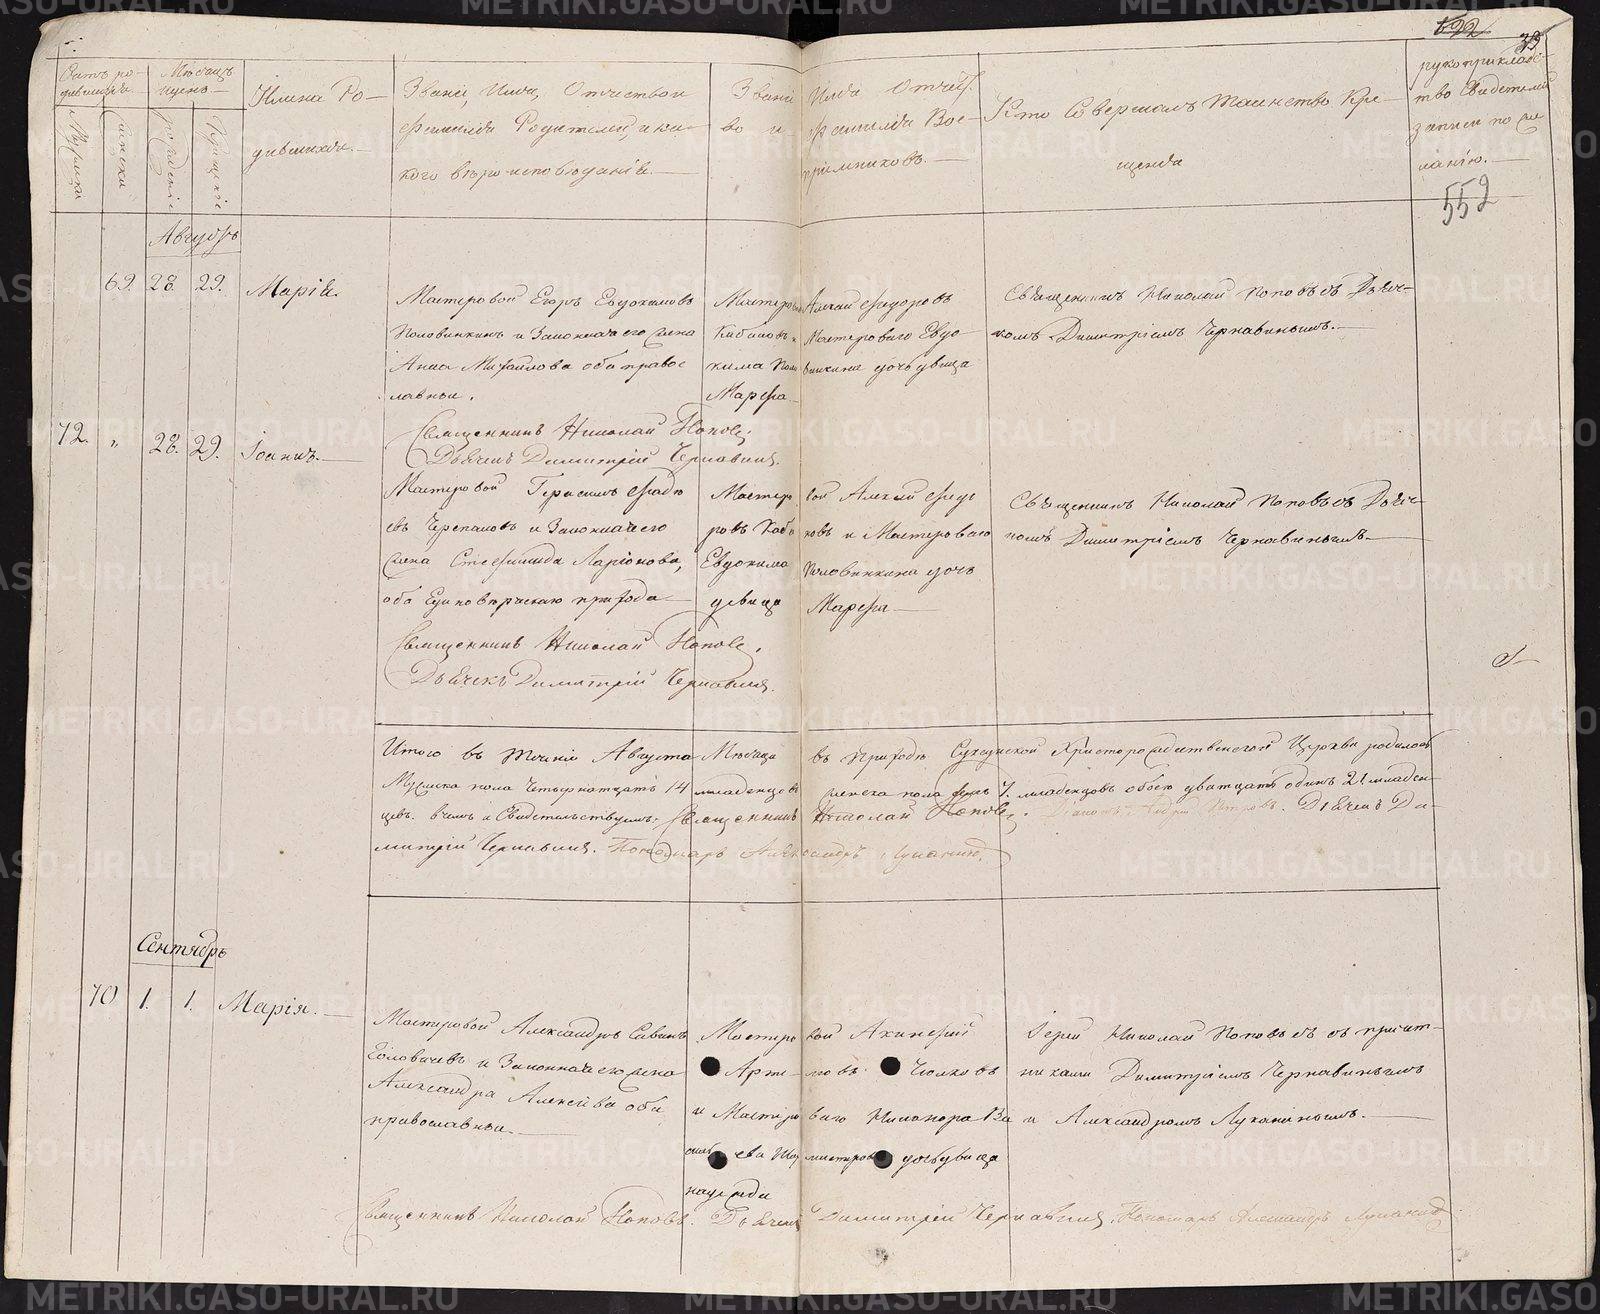 622
35
Счетъ ро-
дившихся.
Мѣсяцъ
и день
Имена Ро-
дившихся.
Званіе, Имя, Отчество и
фамилія Родителей, и ка-
кого вѣроисповѣданія.
Званіе Имя Отчест-
во и фамилія Вос-
пріемниковъ.
Кто Совершалъ Таинство Кре-
щенія
рукоприкладс-
тво Свидетелей
записи по же
ланію.
Мужска
женска
рожденія
крещенія
552
Августъ
69. 28. 29. Марія.
Мастеровой Егоръ Евдокимовъ
Половинкинъ и Законная его жена
Анна Михайлова оба правос
лавные.
Мастеровой Алексѣй Федоровъ
Кабановъ и Мастероваго Евдо
кима Половинкина дочь девица
Марфа
Священникъ Николай Поповъ съ Дьяч-
комъ Димитріемъ Чернавинымъ.
Священникъ Николай Поповъ.
Дьячекъ Димитрій Чернавинъ.
72. „ 28. 29. Іоаннъ.
Мастеровой Герасимъ
Черепановъ и Законная его
жена Ларіонова,
оба Единовѣрческаго прихода
Мастеровой Алексѣй Федо
ровъ Кабановъ и Мастероваго
Евдокима Половинкина дочь
девица Марфа
Священникъ Николай Поповъ съ Дьяч-
комъ Димитріемъ Чернавинымъ.
Священникъ Николай Поповъ.
Дьячекъ Димитрій Чернавинъ.
Итого въ теченіи Августа Мѣсяца въ Приходѣ Суксунской Христорождественской Церкви родилось
Мужска пола Четырнатцать 14 младенцевъ женска пола семь 7. младенцовъ обоего дватцать одинъ 21 младен-
цевъ. въ чемъ и Свидетельствуемъ: Священникъ Николай Поповъ. Діаконъ Петровъ. Дьячекъ Ди-
митрій Чернавинъ. Пономарь Александръ Луканинъ.
Сентябрь
70 1. 1. Марія.
Мастеровой Александръ Савинъ
и Законная его жена
Александра Алексѣева оба
православные.
Мастеровой Акинфій
Арте- мовъ Чолковъ
и Мастероваго Никанора Ва
сильева дочь девица
надежда
Іерей Николай Поповъ съ причет-
никами Димитріемъ Чернавинымъ
и Александромъ Луканинымъ.
Священникъ Николай Поповъ. Дьячекъ Димитрій Чернавинъ. Пономарь Александръ Луканинъ
METRIKI.GASO-URAL.RU